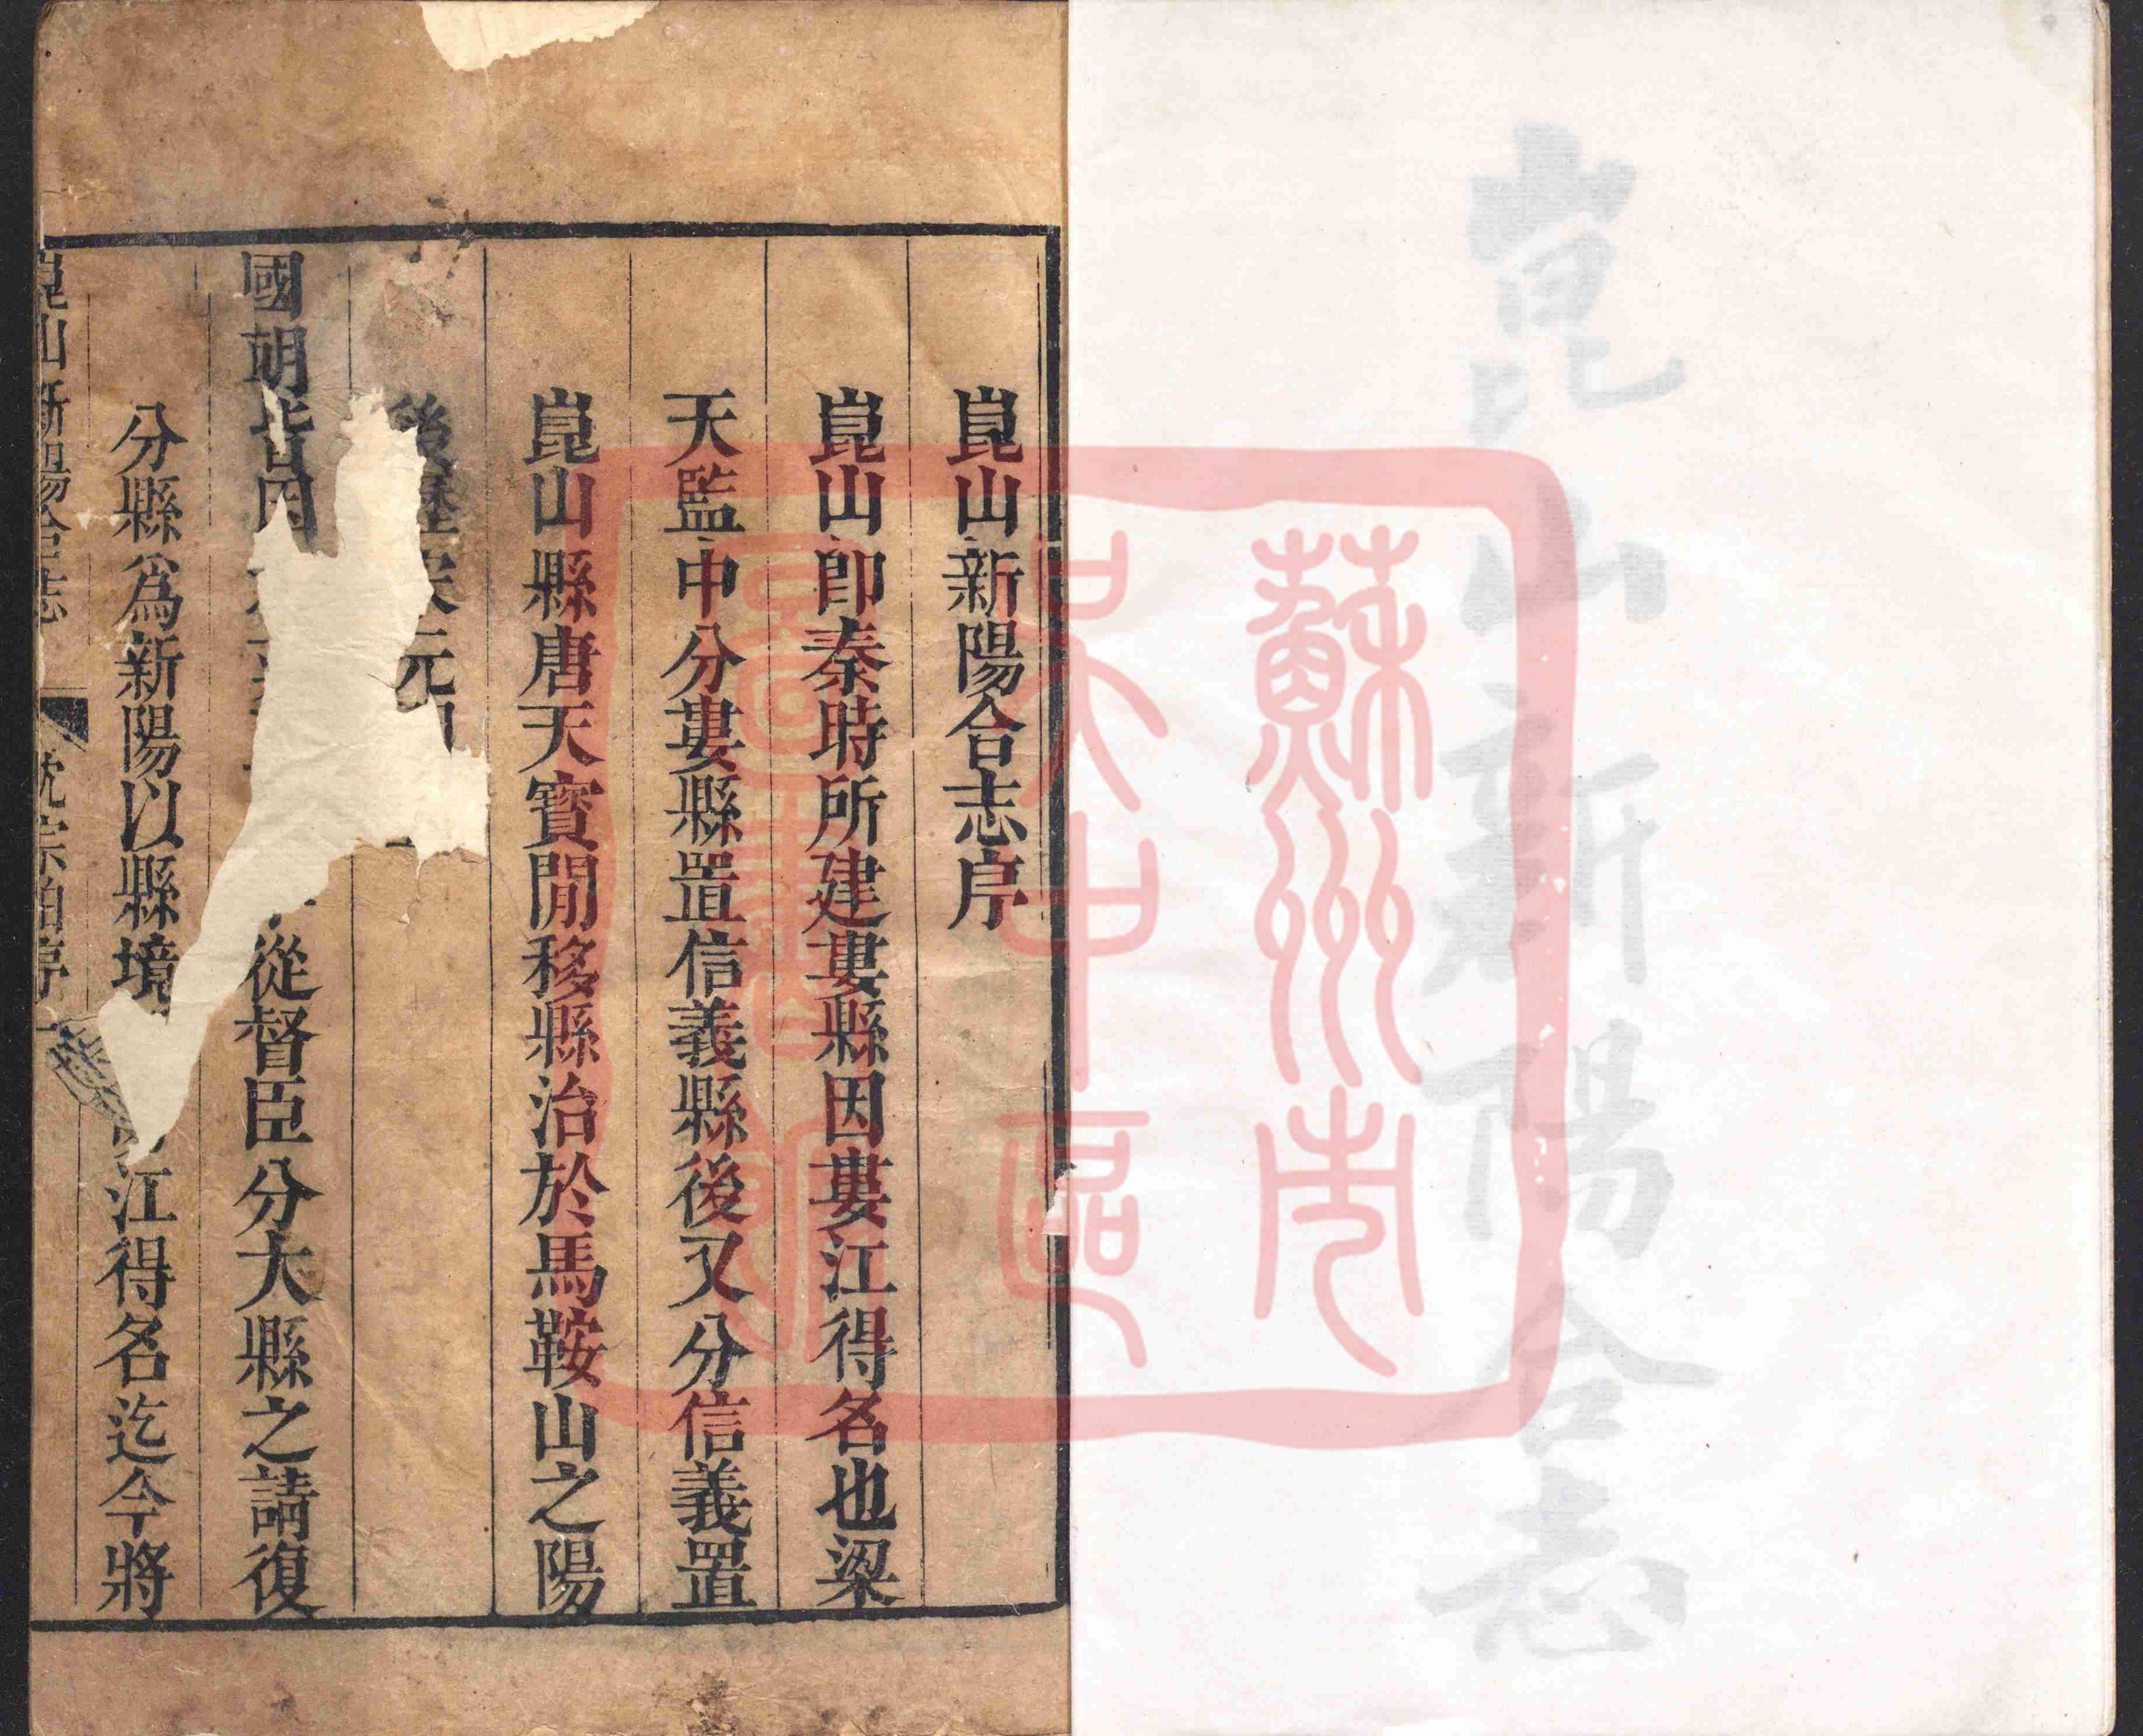 崑山新陽合志
蘇州市
吳中區
圖書館
崑山新陽合志序
崑山卽秦時所建婁縣因婁江得名也梁
天監中分婁縣置信義縣後又分信義置
崑山縣唐天寳閒移縣治於馬鞍山之陽
後歷宋元
國朝皆因
從督臣分大縣之請復
分縣爲新陽以縣境
江得名迄今將
崑山新陽合志
沈宗